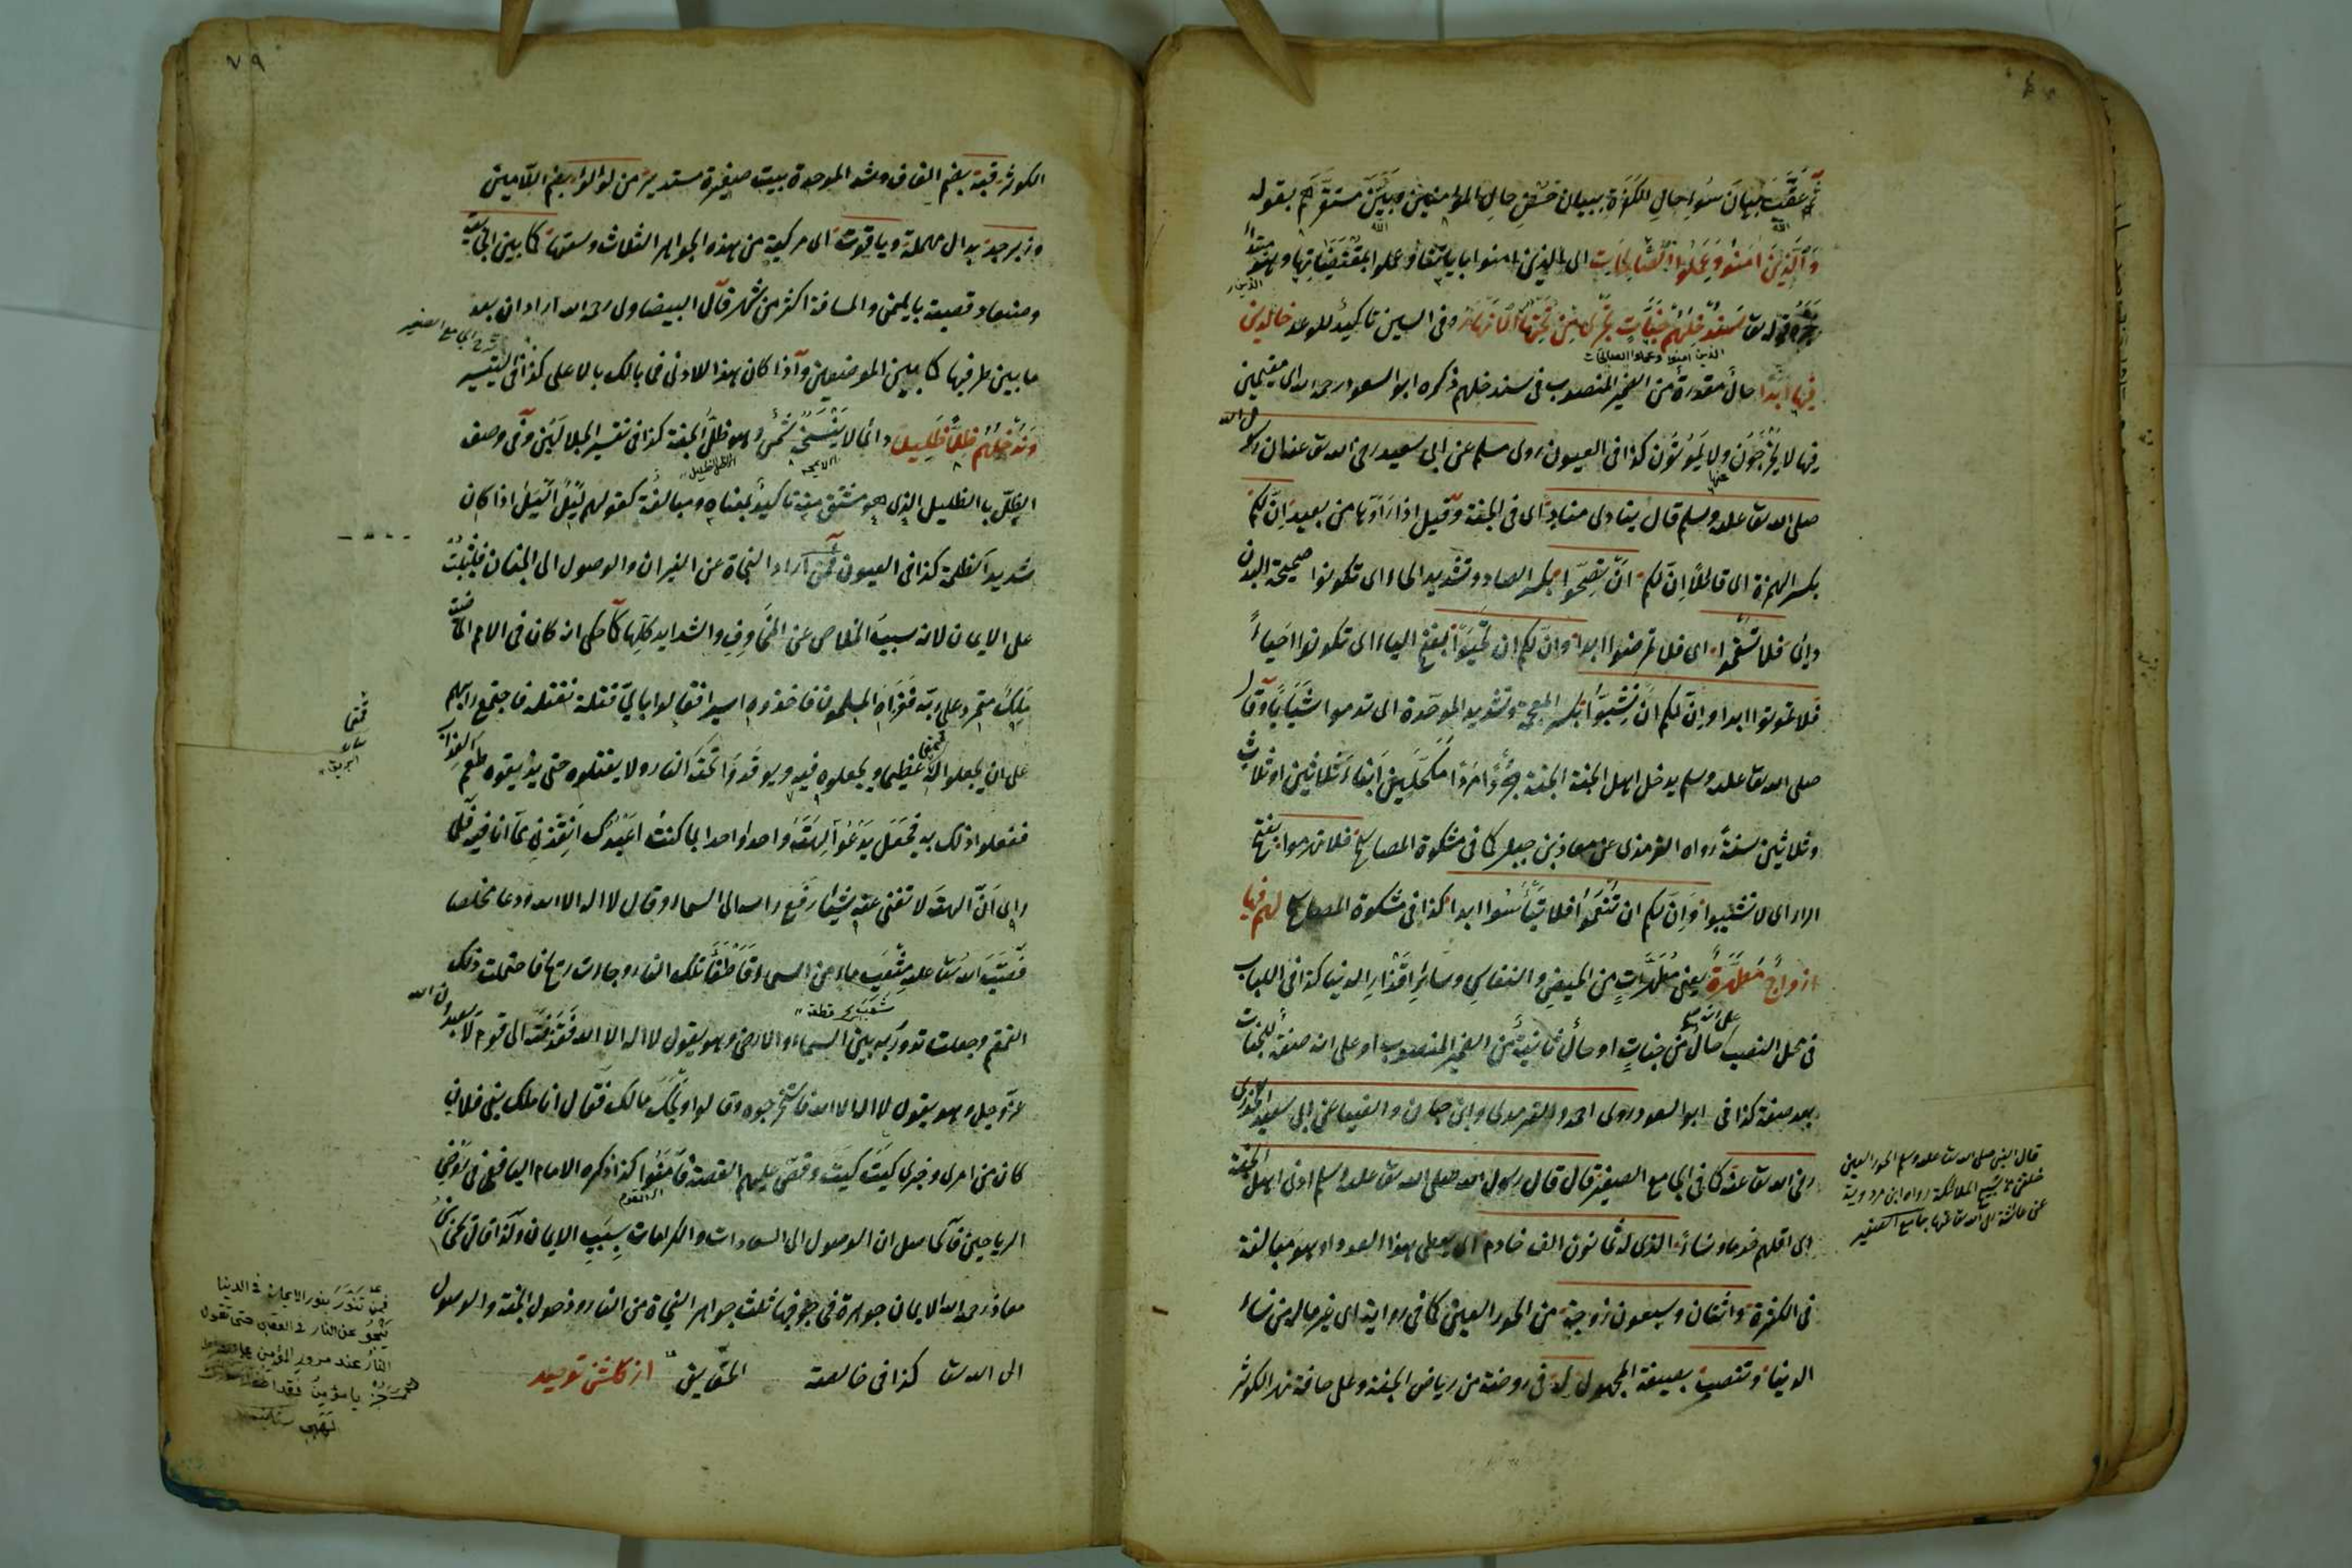 ثم عَقَّبَ بيانَ سُوءِ حالِ الكفرة ببيان حُسْنِ حالِ المؤمنين وبَيَّنَ مستقرَّهم بقوله
وَالَّذِينَ آمَنُوا وَعَمِلُوا الصَّالِحَاتِ اى الذين امنوا باياتنا وعملوا بمقتضياتها وهو مبتدأ
خبره قوله تع سَنُدْخِلُهُمْ جَنَّاتٍ تَجْرِي مِنْ تَحْتِهَا الْأَنْهَارُ وفى السين تاكيدٌ للوعد خالدين
الذين امنوا وعملوا الصالحات
فِيهَا أَبَدًا حالٌ مقدرةٌ من الضمير المنصوب فى سندخلهم ذكره ابو السعود رحمه الله اى مقيمين
فيها لا يُخْرَجُونَ ولا يَمُوتُونَ كذا فى العيون روى مسلم عن ابى سعيد رضى الله تع عنه ان رسول الله
صلى الله تع عليه وسلم قال ينادى منادٍ اى فى الجنة وقيل اذا رَأَوْها من بعيد اِنَّ لَكُمْ
بكسر الهمزة اى قائلاً اِنّ لكم اَنْ تَصِحّوا بكسر الصاد وتشديد الحاء اى تكونوا صحيحة البدن
دائما فلا تَسْقَمُوا اى فلا تمرضوا ابدا وانّ لكم ان تَحْيَوْا بفتح الياء اى تكونوا احياءً
فلا تموتوا ابدا واِنّ لكم انْ تَشِبُّوا بكسر المعجمة وتشديد الموحّدة اى تدوموا شَبَاباً وقال
صلى الله تعا عليه وسلم يدخل اهل الجنة الجنة جُرْدًا مُرْدًا مُكَحَّلِينَ اَبناءَ ثلاثين او ثلاث
وثلاثين سنةً رواه الترمذى عن معاذ بن جبل كما فى مشكوة المصابيح فلا تهرموا بفتح
الراء اى لا تشيبوا وَاِنّ لكم ان تَنْعَمُوا فلا تَبْأَسُوا ابدا كذا فى مشكوة المصابيح لهم فيها
ازواجٌ مُطَهَّرَةٌ يعنى مُطَهَّرَاتٍ من الحيض والنفاسِ وسَائِرِ اَقْذَارِ الدنيا كذا فى اللباب
فى محل النصب على انه حالٌ من جناتٍ او حالٌ ثانيةٌ من الضمير المنصوب او على انه صفةٌ لجنات
بعد صفة كذا فى ابو السعود وروى احمد والترمذى وابن حبان والضياء عن ابى سعيد الخدرى
رضى الله تع عنه كما فى الجامع الصغير قال قال رسول الله صلى الله تع عليه وسلم ادنى اهل الجنة
اى اقلهم خدما ونساءً الذى له ثمانون الف خادم اى يعطى هذا العدد او هو مبالغة
فى الكثرة واثنتان وسبعون زوجة من الحور العين كما فى رواية اى غير ماله من نساء
الدنيا وتنصب بصيغة المجهول له فى روضة من رياض الجنة وعلى حافة نهر الكوثر
قال النبى صلى الله تعا عليه وسلم الحور العين
خلقن من تسبيح الملائكة رواه ابن مردوية
عن عائشة رضى الله تعا عنها جامع الصغير
٧٩
الكوثر قبة بضم القاف وشد الموحدة بيت صغيرة مستدير من لؤلؤ بضم اللامين
وزبرجد بدال مهملة وياقوت اى مركبة من هذه الجواهر الثلاث وسعتها كما بين الجابية
وصنعاء قصبة باليمن والمسافة اكثر من شهر قال البيضاوى رحمه الله اراد ان بعد
شرح الجامع الصغير
ما بين طرفيها كما بين الموضعين واذا كان هذا الادنى فما بالك بالاعلى كذا فى التيسير
وَنُدْخِلُهُمْ ظِلًّا ظَلِيلًا دائما لا يَنْسَخُهُ شَمْسٌ وهو ظلُّ الجنة كذا فى تفسير الجلالين وفى وصف
الظلّ باالظليل الذى هو مشتق منه تاكيدٌ لمعناه ومبالغةٌ كقولهم لَيْلٌ اَلْيَلُ اذا كان
شديد الظلمة كذا فى العيون فَمَنْ اَراد النجاة عن النيران والوصول الى الجنان فليَثْبُتْ
على الايمان لانه سببُ الخلاص عن المخاوِفِ والشدايد كلها كما حكى انه كان فى الامم الماضية
مَلِكٌ متمرد على ربّه فَغَزَاهُ المسلمون فاخذوه اسيرا فقالوا باىّ قتلة نقتله فاجتمع رايهم
على ان يجعلوا له قمقما عظيما ويجعلوه فيه ويوقدوا تحته النار ولا يقتلوه حتى يذيقوه طعم العذاب
قمقما
ففعلوا ذلك به فجعل يَدْعُو آلِهَتَهُ واحدا واحدا بما كنتُ اَعْبُدُك اَنْقِذْنِى مما انا فيه فلما
راى اَنّ آلهته لا تغنى عنه شيئا رَفَعَ راسه الى السماء وقال لا اله الا الله ودعا مخلصا
فَصَبَّ الله تعا عليه مَثْعَبَ ماء من السماء فَاَطْفَأَ تلك النار وجاءت ريح فاحتملت ذلك
القمقم وجعلت تدور به بين السماء والارض وهو يقول لا اله الا الله فَقَذَفَتْه الى قوم لا يعبدون الله
عزّ وجل وهو يقول لا اله الا الله فاستخرجوه وقالوا ويحك مالك فقال انا ملك بنى فلان
كان من امرى وخبرى كَيْتَ كَيْتَ وقصّ عليهم القصة فآمَنُوا كذا ذكره الامام اليافعى فى روض
الرياحين فالحاصل ان الوصول الى السعادات والكرامات بسبَبِ الايمان ولذا قال يحيى بن
معاذ رحمه الله الايمان جوهرة فى جوفها ثلث جواهر النجاة من النار ودخول الجنة والوصول
الى الله تعا كذا فى خالصة الحقايق از كلشن توحيد
فمن تَنَوَّرَ بنور الايمان فى الدنيا
يَنْجُو عن النار فى العقبى حتى تقول
النارُ عند مرور المؤمن على الصراط
جُزْ يا مؤمن فقد اطفأ نورك
لهبى